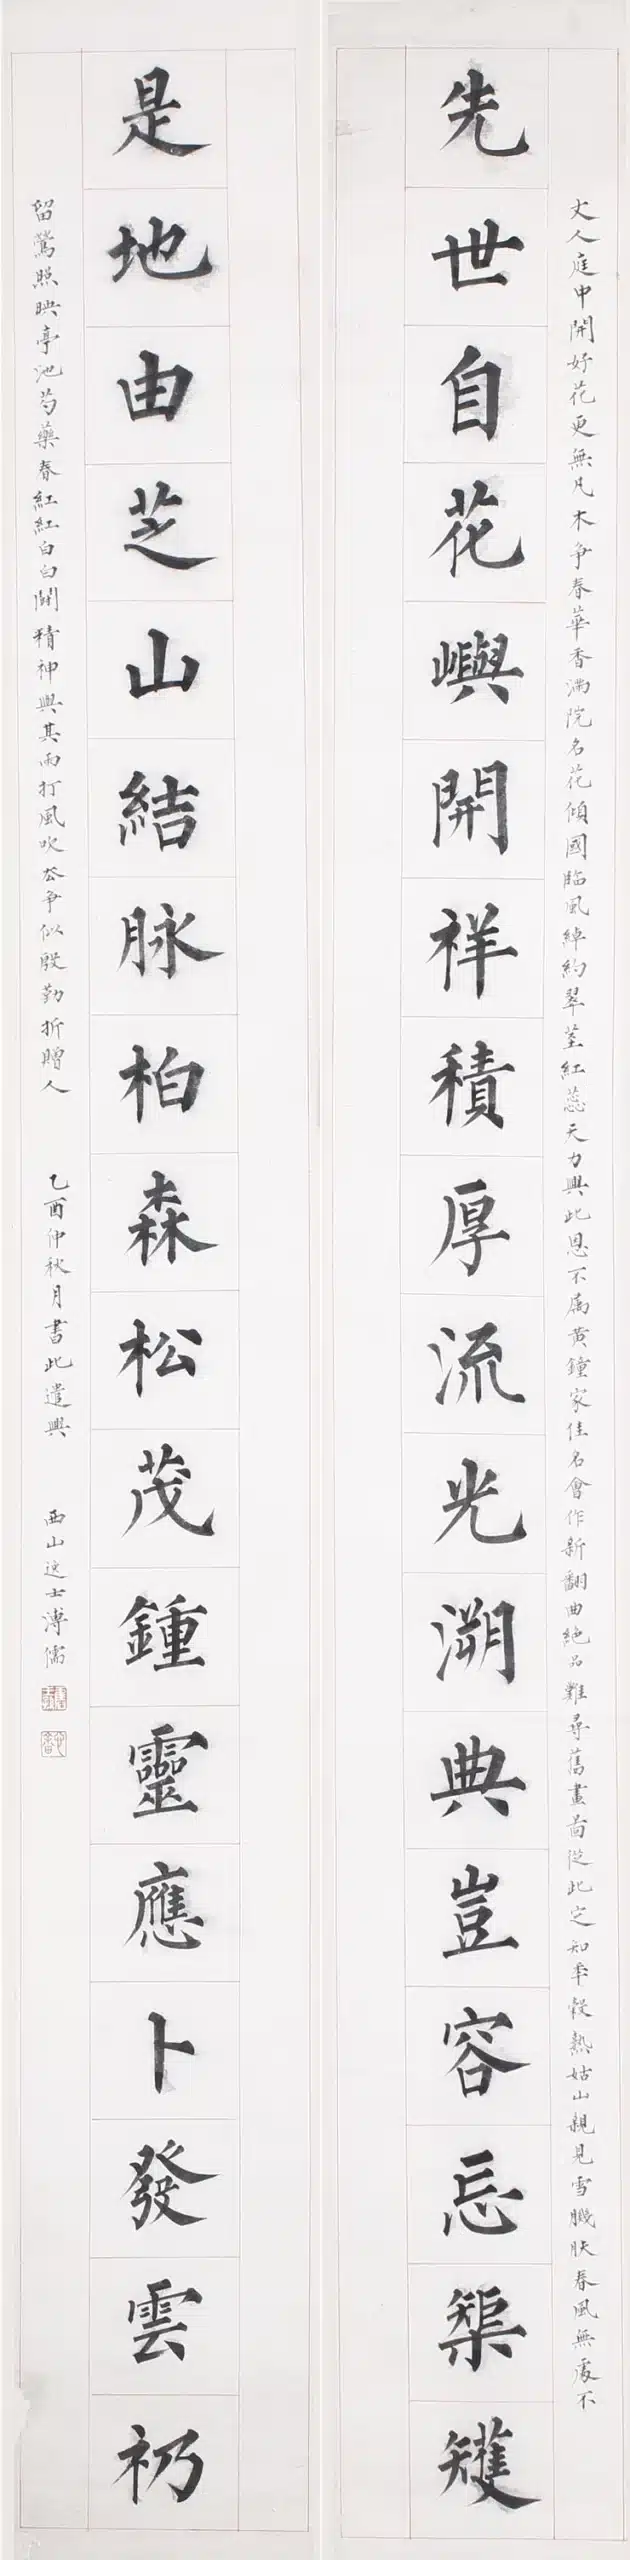 丈人庭中開好花更無凡木争春華香滿院名花傾國臨風綽約翠莖紅蕊天力與此恩不屬黄鐘家佳名會作新翻曲絶品難尋舊畫圖從此定知年穀熟姑山親見雪肌膚春風無處不
先世自花嶼開祥積厚流光溯典豈容忘榘矱
是地由芝山結脉柏森松茂鍾靈應卜發雲礽
留鶯照映亭池芍藥春紅紅白白開精神與其雨打風吹去争似殷勤折贈人
乙酉仲秋月書此遣興
西山逸士溥儒